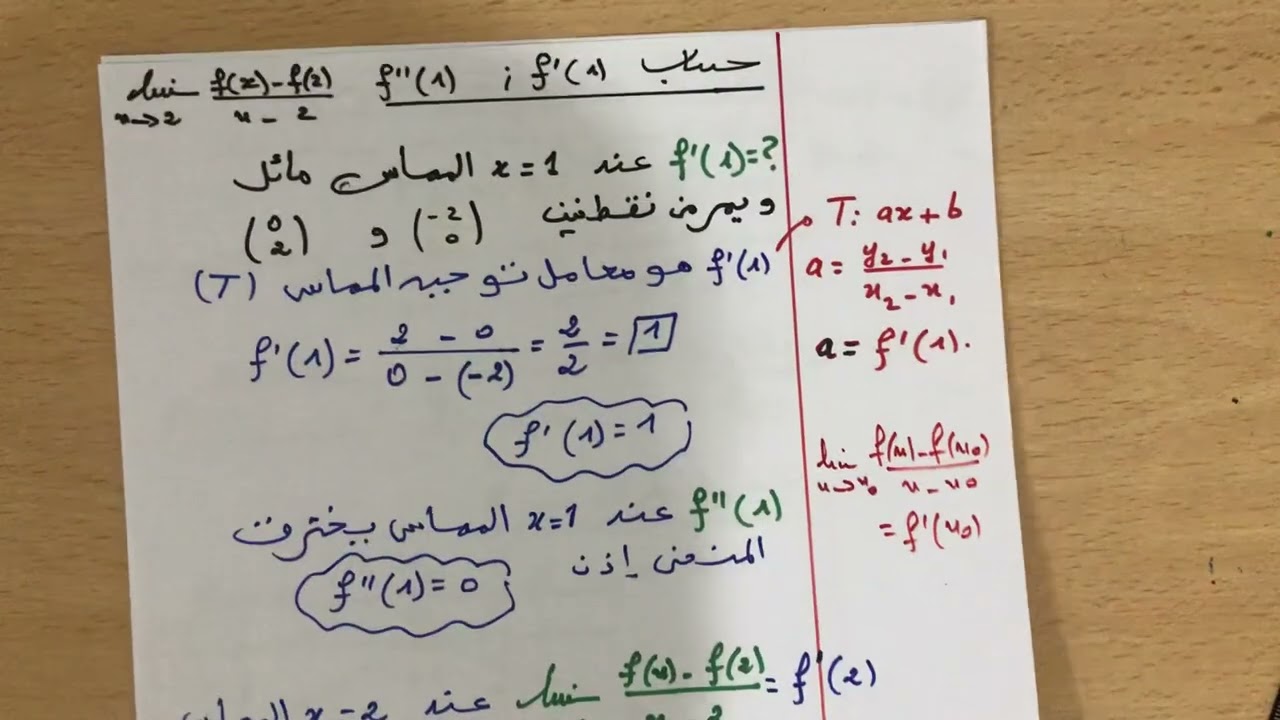 حساب f'(1) ; f''(1) lim x→2 f(x)-f(2) / x-2
f'(1)=? عند x=1 المماس مائل
ويمر من نقطتين (-2 0) و (0 2)
f'(1) هو معامل توجيه المماس (T)
f'(1) = 2 - 0 / 0 - (-2) = 2/2 = 1
f'(1) = 1
f''(1) عند x=1 المماس يخترق
المنحنى إذن f''(1) = 0
lim f(x) - f(2) / x - 2 = f'(2)
عند x=2
T: ax + b
a = y2 - y1 / x2 - x1
a = f'(1).
lim x→x0 f(x) - f(x0) / x - x0
= f'(x0)